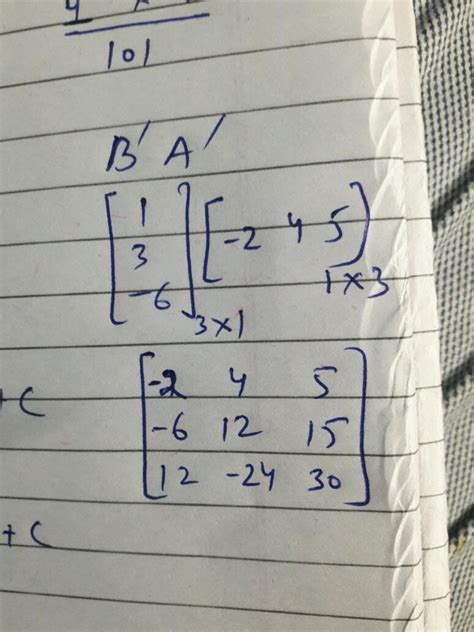 101
B' A'
[1 3 -6] 3×1 [-2 4 5] 1×3
+ C
[-2 4 5
-6 12 15
12 -24 30]
+ C